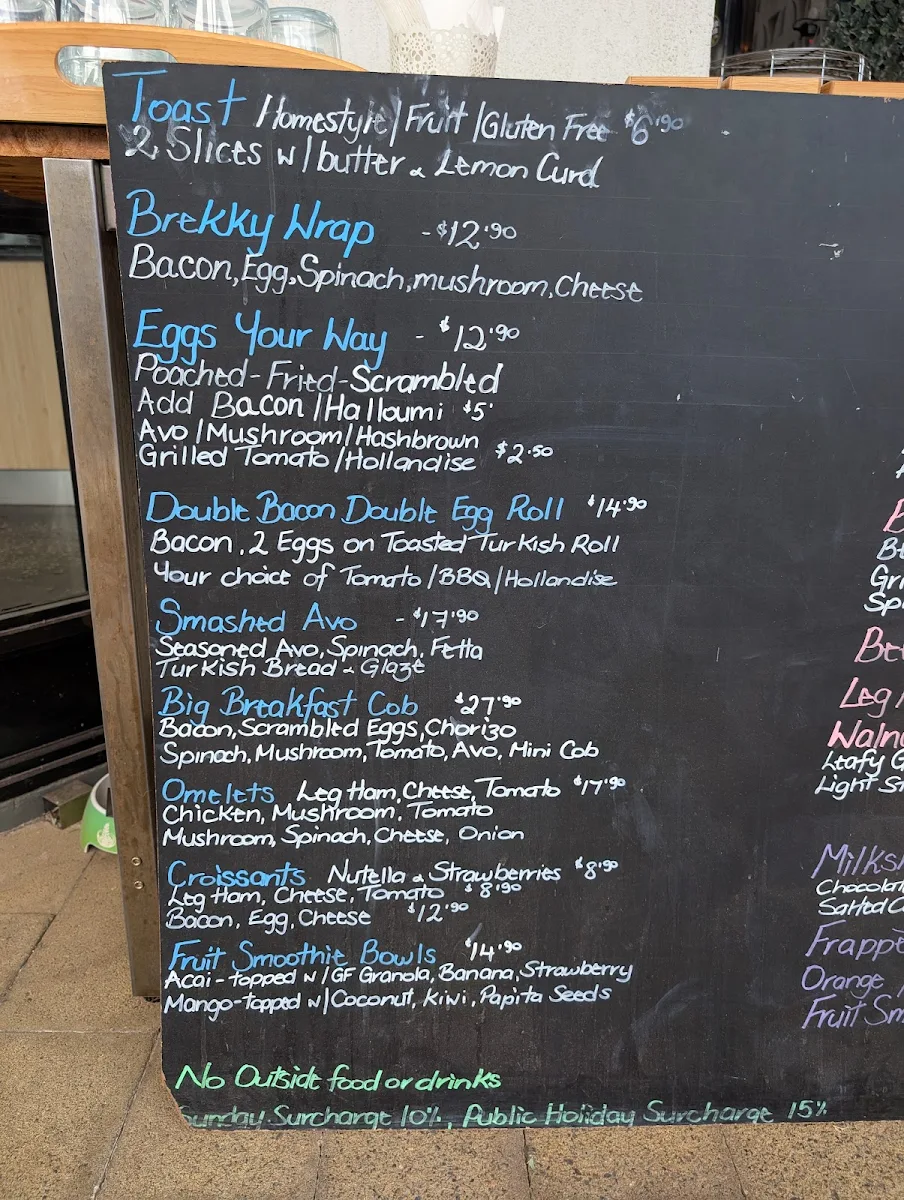 Toast /Homestyle/Fruit/Gluten Free $6.90
2 Slices w/butter & Lemon Curd
Brekky Wrap -$12.90
Bacon, Egg, Spinach, mushroom, Cheese
Eggs Your Way - $12.90
Poached-Fried-Scrambled
Add Bacon/Halloumi $5
Avo/Mushroom/Hashbrown
Grilled Tomato/Hollandise $2.50
Double Bacon Double Egg Roll $14.90
Bacon, 2 Eggs on Toasted Turkish Roll
Your choice of Tomato/BBQ/Hollandise
Smashed Avo -$17.90
Seasoned Avo, Spinach, Fetta
Turkish Bread - Glaze
Big Breakfast Cob $27.90
Bacon, Scrambled Eggs, Chorizo
Spinach, Mushroom, Tomato, Avo, Mini Cob
Omelets Leg Ham, Cheese, Tomato $17.90
Chicken, Mushroom, Tomato
Mushroom, Spinach, Cheese, Onion
Croissants Nutella & Strawberries $8.90
Leg Ham, Cheese, Tomato $8.90
Bacon, Egg, Cheese $12.90
Fruit Smoothie Bowls $14.90
Acai-topped w/GF Granola, Banana, Strawberry
Mango-topped w/Coconut, Kiwi, Papita Seeds
No Outside food or drinks
Sunday Surcharge 10%, Public Holiday Surcharge 15%
Gri
Sp
Leg
Waln
Leafy G
Light St
Milksh
Chocolat
Salted C
Frappe
Orange
Fruit Sm